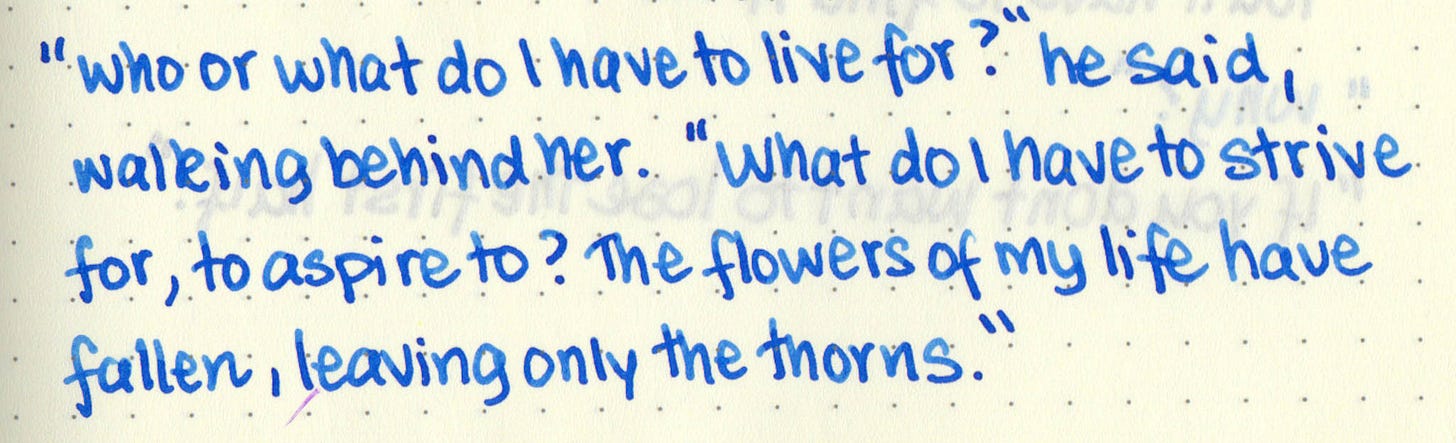 "who or what do I have to live for?" he said,
walking behind her. "What do I have to strive
for, to aspire to? The flowers of my life have
fallen, leaving only the thorns."